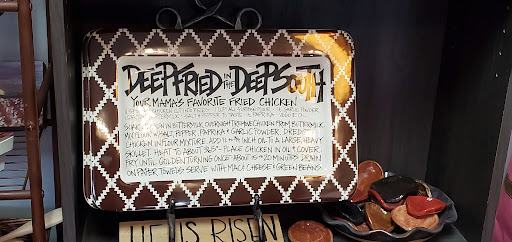 DEEP FRIED IN THE DEEP SOUTH
YOUR MAMA'S FAVORITE FRIED CHICKEN
GARLIC POWDER
PAPRIKA
CHICKEN IN BUTTERMILK OVERNIGHT REMOVE CHICKEN FROM BUTTERMILK
SALT, PEPPER, PAPRIKA & GARLIC POWDER. DREDGE
CHICKEN IN FLOUR MIXTURE. ADD INCH OIL TO A LARGE, HEAVY
SKILLET. HEAT TO ABOUT PLACE CHICKEN IN OIL & COVER.
FRY UNTIL GOLDEN TURNING ONCE ABOUT 15 TO 20 MINUTES. DRAIN
ON PAPER TOWELS! SERVE WITH MAC & CHEESE & GREEN BEANS.
HE IS RISEN